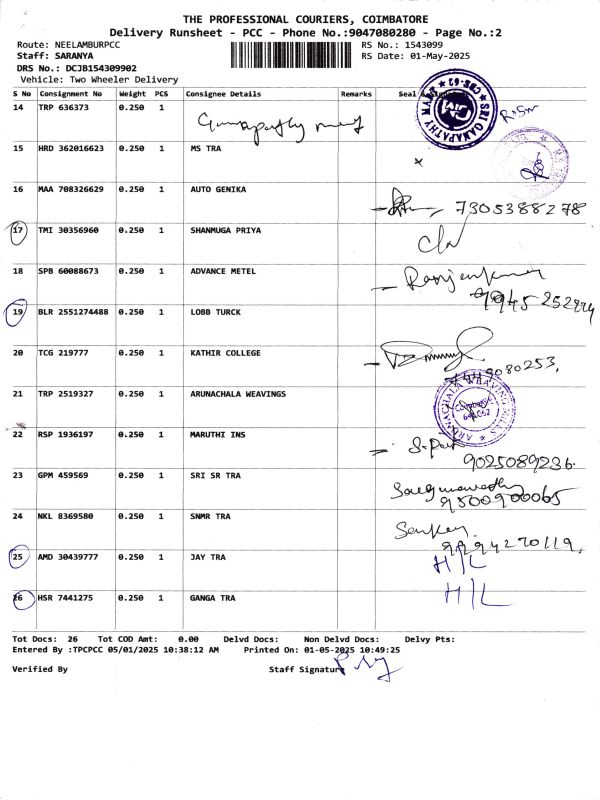 THE PROFESSIONAL COURIERS, COIMBATORE
Delivery Runsheet - PCC - Phone No.:9047080280 - Page No.:2
Route: NEELAMBURPCC RS No.: 1543099
Staff: SARANYA RS Date: 01-May-2025
DRS No.: DCJB154309902
Vehicle: Two Wheeler Delivery
S No Consignment No Weight PCS Consignee Details Remarks Seal
14 TRP 636373 0.250 1
15 HRD 362016623 0.250 1 MS TRA
16 MAA 708326629 0.250 1 AUTO GENIKA
7305388278
17 TMI 30356960 0.250 1 SHANMUGA PRIYA
18 SPB 60088673 0.250 1 ADVANCE METEL
19 BLR 2551274488 0.250 1 LOBB TURCK
20 TCG 219777 0.250 1 KATHIR COLLEGE
21 TRP 2519327 0.250 1 ARUNACHALA WEAVINGS
22 RSP 1936197 0.250 1 MARUTHI INS
9025089236
23 GPM 459569 0.250 1 SRI SR TRA
9500900065
24 NKL 8369580 0.250 1 SNMR TRA
9994270119,
25 AMD 30439777 0.250 1 JAY TRA H/L
26 HSR 7441275 0.250 1 GANGA TRA H/L
Tot Docs: 26 Tot COD Amt: 0.00 Delvd Docs: Non Delvd Docs: Delvy Pts:
Entered By :TPCPCC 05/01/2025 10:38:12 AM Printed On: 01-05-2025 10:49:25
Verified By Staff Signature